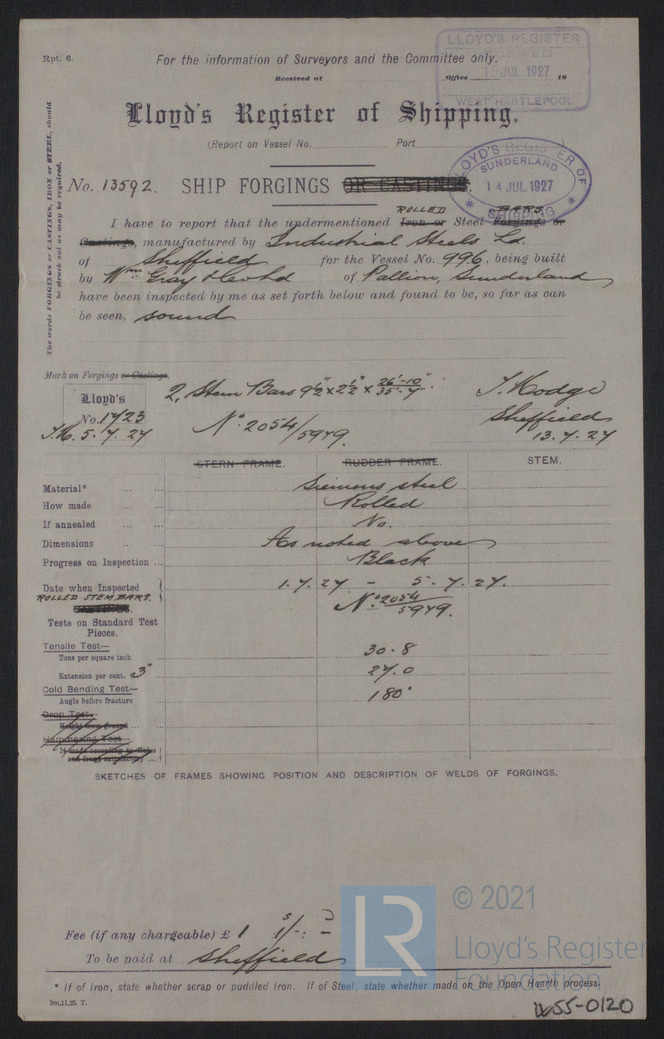 Rpt. 6.
For the information of Surveyors and the Committee only.
Received at Office 19
LLOYD'S REGISTER
RECEIVED
JUL. 1927
WEST HARTLEPOOL
Lloyd's Register of Shipping.
(Report on Vessel No. Port
LLOYD'S REGISTER OF
SUNDERLAND
14 JUL 1927
* SHIPPING *
The words FORGINGS or CASTINGS, IRON or STEEL, should
be struck out as may be required.
No. 13592. SHIP FORGINGS OR CASTINGS.
ROLLED BARS
I have to report that the undermentioned Iron or Steel Forgings or
Castings, manufactured by Industrial Steels Ld.
of Sheffield for the Vessel No. 996, being built
by Wm Gray & Co Ltd of Pallion, Sunderland
have been inspected by me as set forth below and found to be, so far as can
be seen, sound
Mark on Forgings or Castings.
Lloyd's
No. 1723
J.H. 5.7.27
2, Stem Bars 9½" x 2½" x 26'-10" 35'-7"
No 2054/5979.
J. Hodge
Sheffield
13.7.27
STERN FRAME. RUDDER FRAME. STEM.
Material* Siemens steel
How made Rolled
If annealed No.
Dimensions As noted above
Progress on Inspection Black
Date when Inspected 1.7.27 – 5.7.27.
ROLLED STEM BARS. No. 2054/5979.
Tests on Standard Test
Pieces.
Tensile Test—
Tons per square inch 30.8
Extension per cent. 3" 27.0
Cold Bending Test—
Angle before fracture 180°
Drop Test—
Hammering Test
SKETCHES OF FRAMES SHOWING POSITION AND DESCRIPTION OF WELDS OF FORGINGS.
Fee (if any chargeable) £ 1 1/- : -
To be paid at Sheffield
* If of Iron, state whether scrap or puddled Iron. If of Steel, state whether made on the Open Hearth process.
3m,11,25. T.
LR
© 2021
Lloyd's Register
Foundation
W655-0120